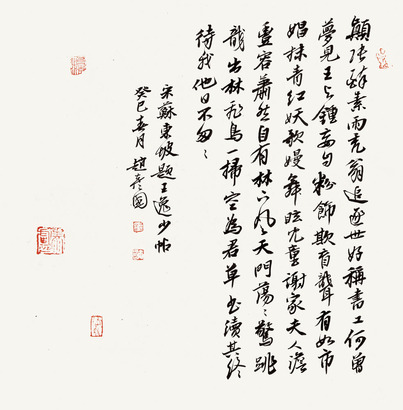 顛張醉素兩禿翁追逐世好稱書工何曾
夢見王與鍾妄自粉飾欺盲聾有如市
娼抹青紅妖歌嫚舞眩兒童謝家夫人澹
豐容蕭然自有林下風天門蕩〻驚跳
龍出林飛鳥一掃空為君草書續其終
待我他日不匆〻
宋蘇東坡題王逸少帖
癸巳春月 趙彥國